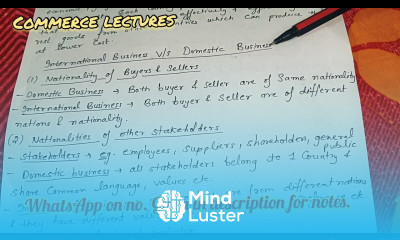 COMMERCE LECTURES
economy of each country effectively & eff
that from other countries which can produce
rest goods
at lower cost.
International Business V/s Domestic Business
(1) Nationality of Buyers & Sellers
- Domestic Business → Both buyer & seller are of Same nationality
- International Business → Both buyer & seller are of different
nations & nationality.
(2) Nationalities of other stakeholders
- Stakeholders → eg. employees, suppliers, shareholders, general public
- Domestic business → all stakeholders belong to 1 Country &
share Common language, values etc.
from different nations
& they have different
WhatsApp on no. in description for notes.
Mind
Luster